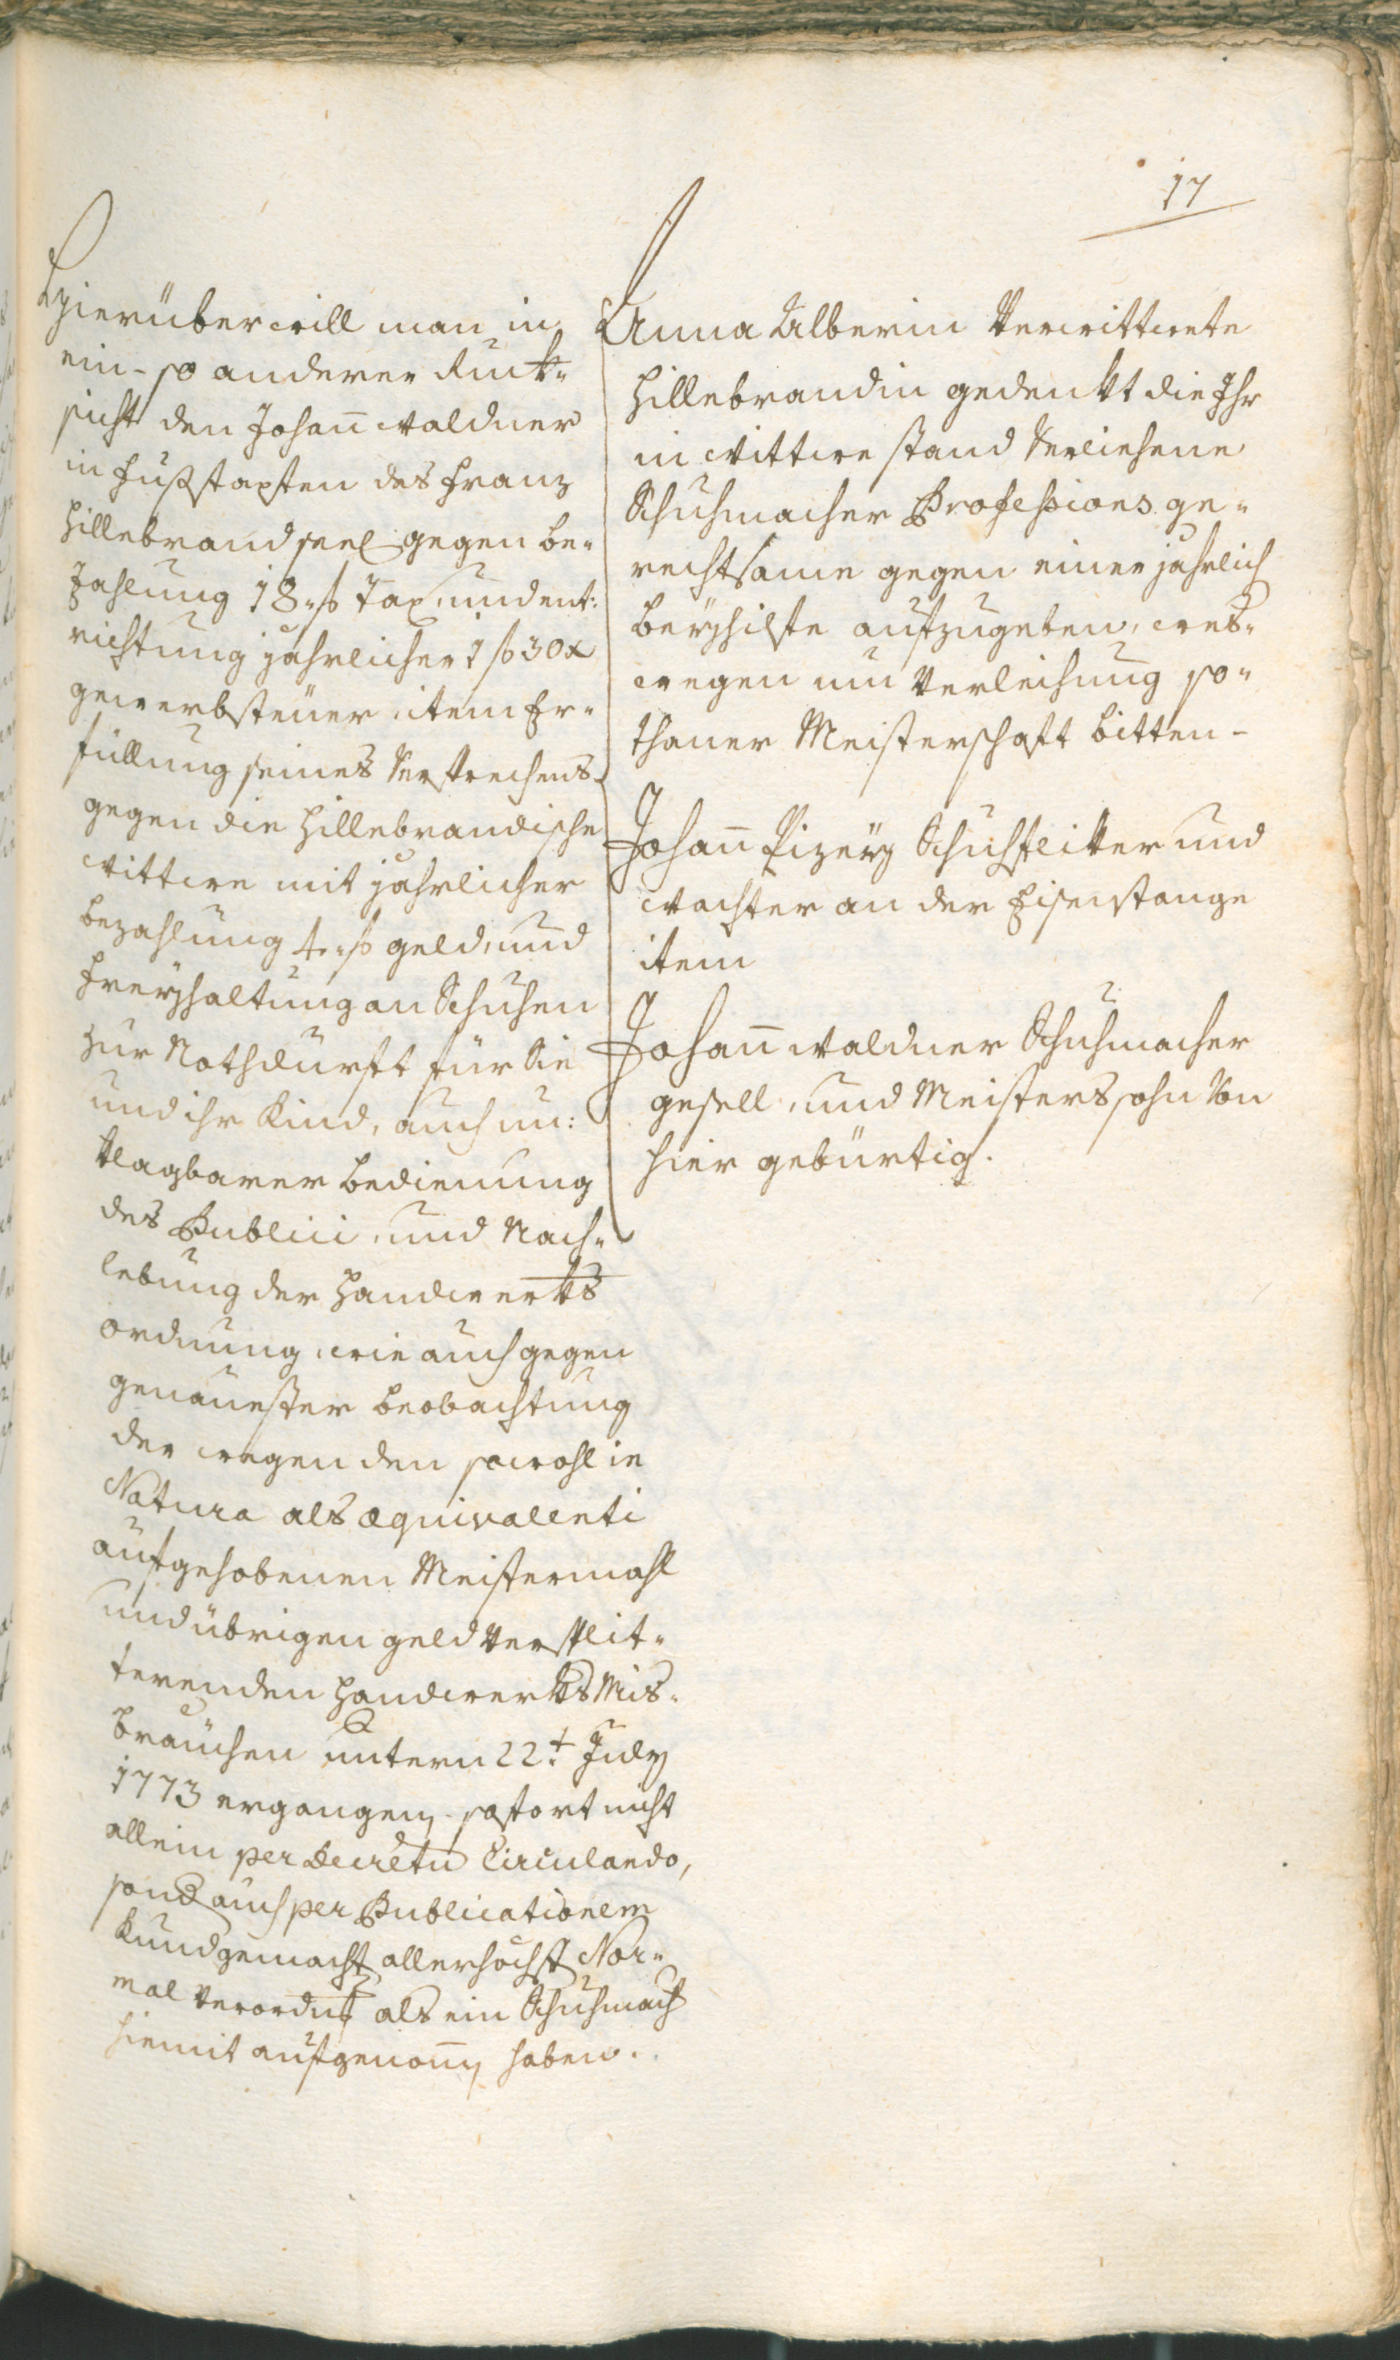 17
Hierüber will man in
ein- so anderer Ruck-
sicht den Johann̄ Waldner
in Fußstapfen des Franz
Hillebrand seel gegen be-
zahlung 18 f Tax, und ent:
richtung jährlicher 1 f 30 x
gewerbsteuer, item Er-
füllung seines Versprechens
gegen die Hillebrandische
Wittwe mit jährlicher
bezahlung 4 f geld, und
Freyhaltung an Schuhen
zur Nothdurfft für Sie
und ihr Kind, auch un:
klagbarer bedienung
des Publici, und Nach-
lebung der Handwerks
ordnung, wie auch gegen
genauester beobachtung
der wegen den sowohl in
Natura als æquivalenti
aufgehobenen Meistermahl
und übrigen geld versplit-
terenden Handwerks Mis-
bräuchen untern 22t July
1773 ergangen, sofort nicht
allein per Decretu Circulando,
sond auch per Publicationem
Kundgemacht allerhöchst Nor-
mal Verordng als ein Schuhmach
hiemit aufgenom̄en haben.
Anna Alberin Verwittwete
Hillebrandin gedenkt die Ihr
in Wittwe stand Verliehene
Schuhmacher Professions ge-
rechtsame gegen einer jährlich
beyhilfe aufzugeben, wes-
wegen um Verleihung so-
thaner Meisterschaft bitten-
Johann̄ Pizeÿ Schuhfliker und
Wachter an der Eisenstange
item
Johann̄ Waldner Schuhmacher
gesell, und Meisters sohn Von
hier gebürtig.